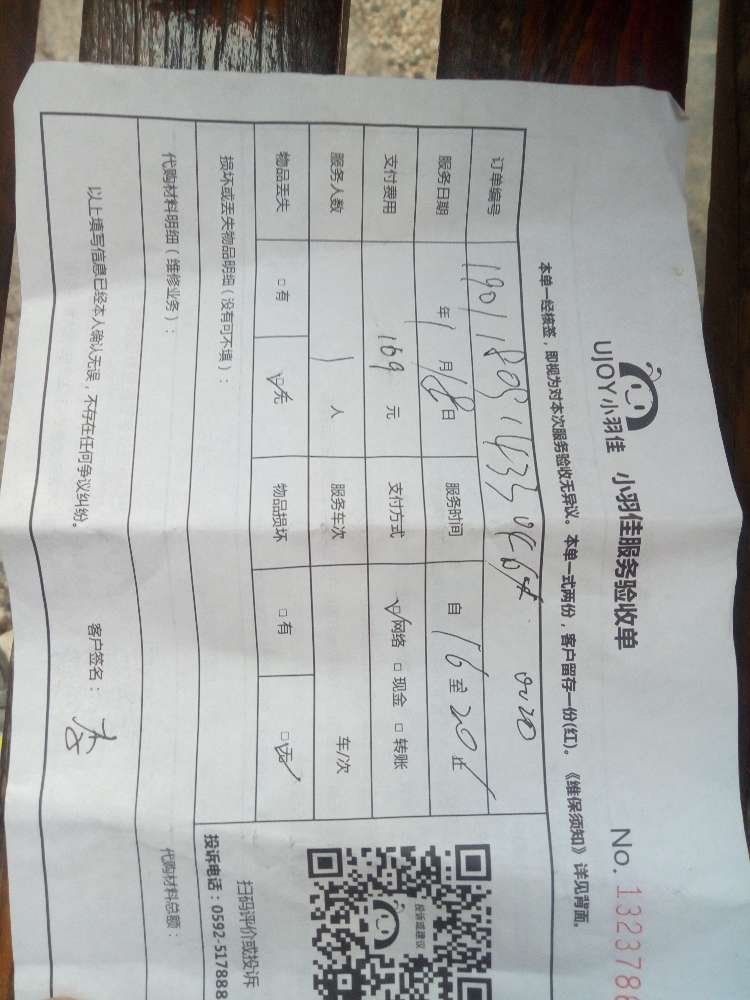 UJOY小羽佳 小羽佳服务验收单
No. 1323788
本单一经核签，即视为对本次服务验收无异议。本单一式两份，客户留存一份(红)。《维保须知》详见背面。
订单编号
服务日期 年 1 月 18 日 服务时间 自 16 至 20 止
支付费用 169 元 支付方式 网络 □ 现金 □ 转账
服务人数 1 人 服务车次 车/次
物品丢失 □ 有 □ 无 物品损坏 □ 有 □ 无
损坏或丢失物品明细（没有可不填）：
代购材料明细（维修业务）：
代购材料总额：
以上填写信息已经本人确认无误，不存在任何争议纠纷。
客户签名： 李
投诉或建议
扫码评价或投诉
投诉电话：0592-517888